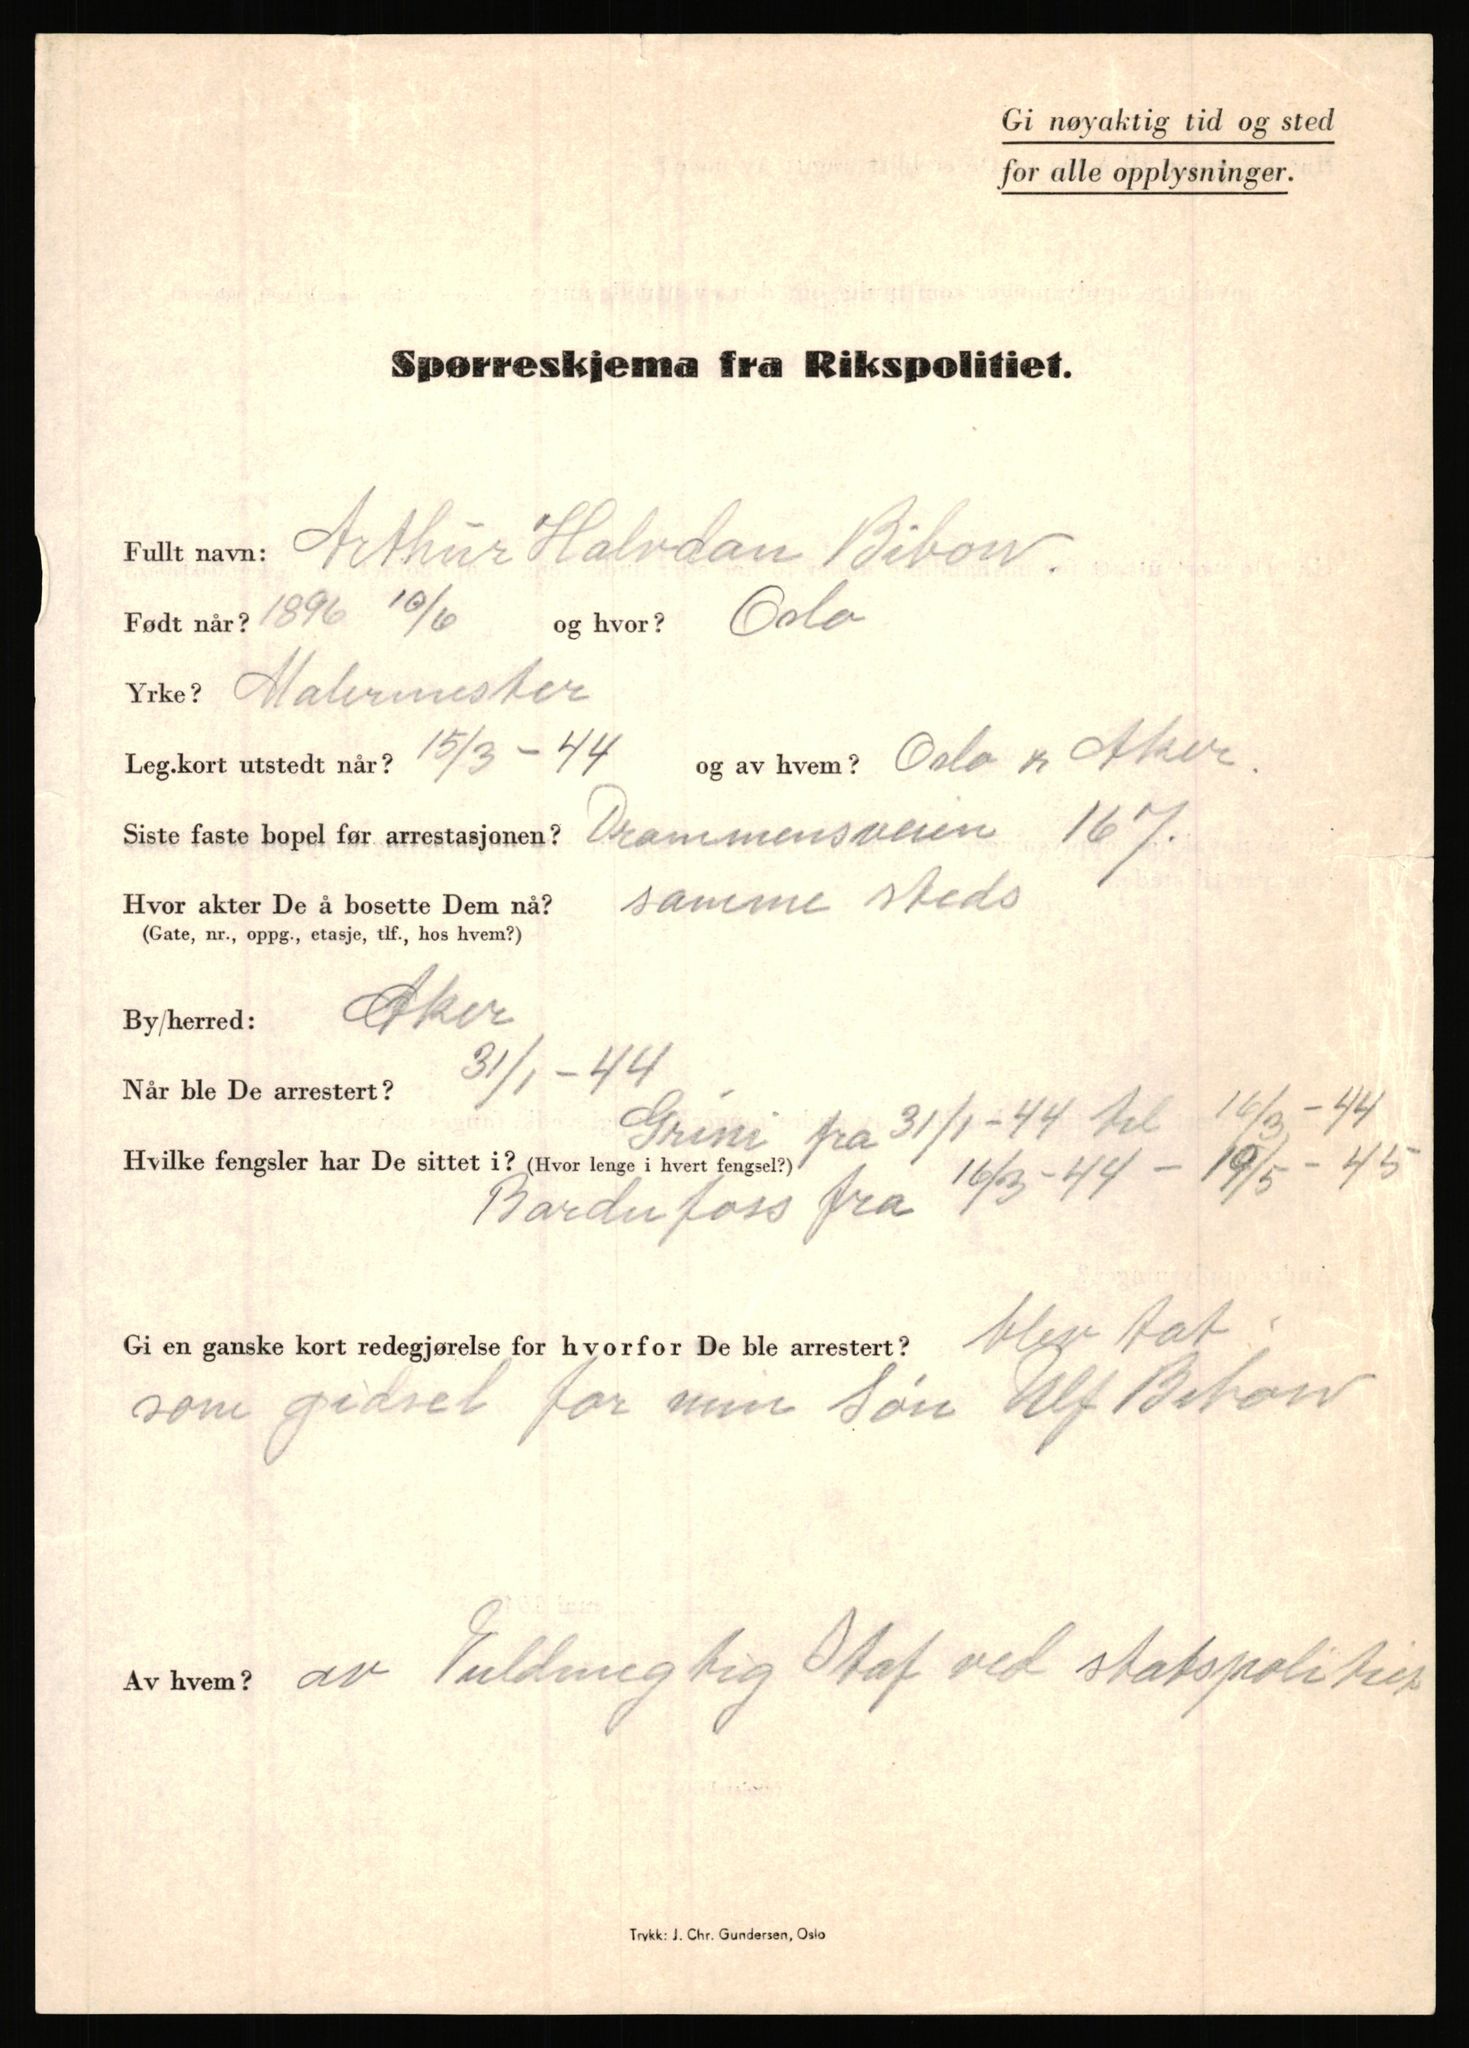 Gi nøyaktig tid og sted
for alle opplysninger.
Spørreskjema fra Rikspolitiet.
Fullt navn: Arthur Halvdan Bibow.
Født når? 1896 10/6 og hvor? Oslo
Yrke? Malermester
Leg.kort utstedt når? 15/3 - 44 og av hvem? Oslo & Aker.
Siste faste bopel før arrestasjonen? Drammensveien 167.
Hvor akter De å bosette Dem nå? samme steds
(Gate, nr., oppg., etasje, tlf., hos hvem?)
By/herred: Aker
Når ble De arrestert? 31/1 - 44
Grini fra 31/1 - 44 til 16/3 - 44
Hvilke fengsler har De sittet i? (Hvor lenge i hvert fengsel?)
Bardufoss fra 16/3 - 44 - 19/5 - 45
Gi en ganske kort redegjørelse for hvorfor De ble arrestert? blev tat
som gidsel for min Søn Ulf Bibow
Av hvem? av Fuldmegtig Staf ved statspolitiet
Trykk: J. Chr. Gundersen, Oslo